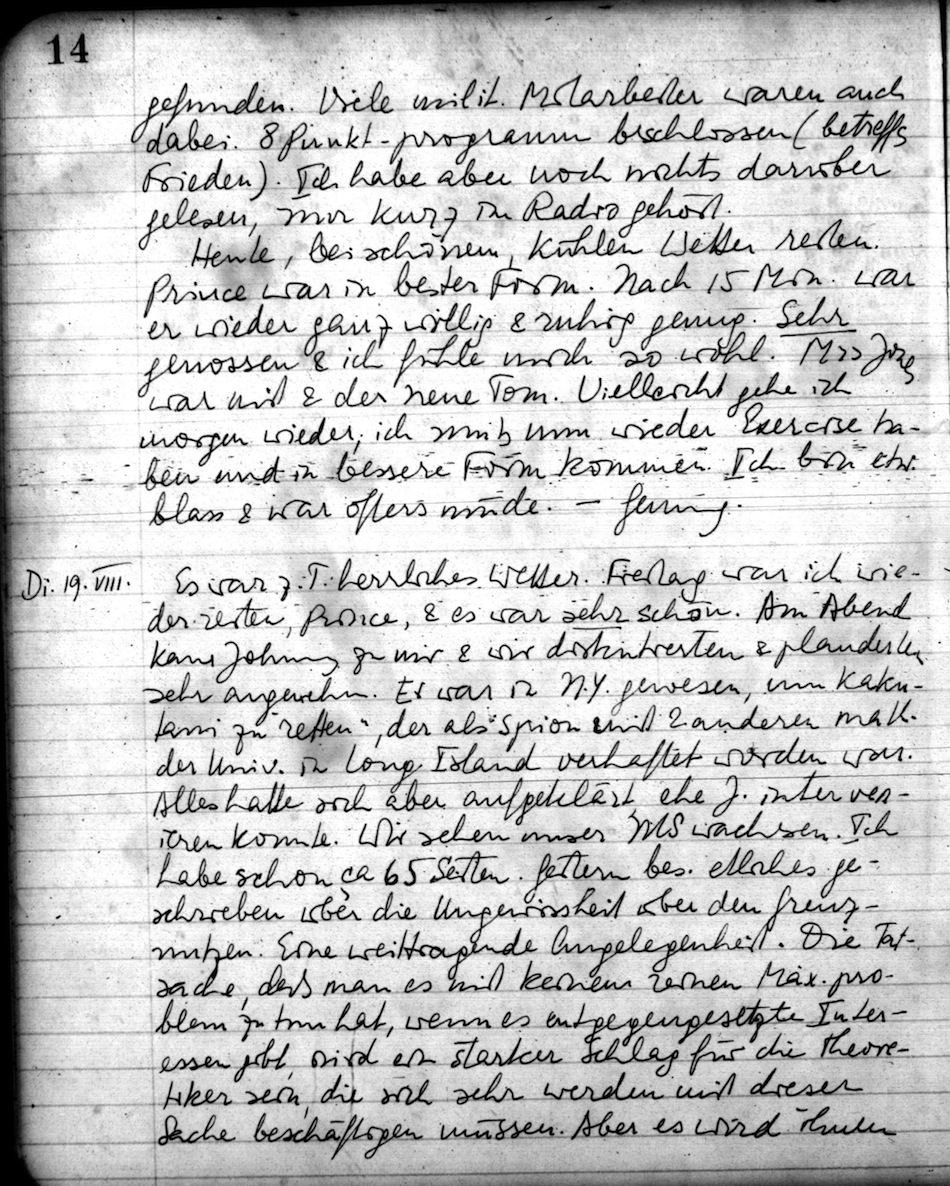 14
gefunden. Viele milit. Mitarbeiter waren auch
dabei. 8 Punkt-programm beschlossen (betreffs
Frieden). Ich habe aber noch nichts darüber
gelesen, nur kurz im Radio gehört.
Heute, bei schönem, kühlen Wetter reiten.
Prince war in bester Form. Nach 15 Min. war
er wieder ganz willig & ruhig genug. Sehr
genossen & ich fühle mich so wohl. Miss
war mit & der neue Tom. Vielleicht gehe ich
morgen wieder, ich muß nun wieder Exercise ha-
ben und in bessere Form kommen. Ich bin etw.
blass & war öfters müde. – Genug.
Di. 19. VIII. Es war z. T. herrliches Wetter. Freitag war ich wie-
der reiten, Prince, & es war sehr schön. Am Abend
kam Johnny zu mir & wir diskutierten & plauderten
sehr angenehm. Er war in N.Y. gewesen, um Kaku-
tani zu "retten", der als Spion mit 2 anderen math.
der Univ. in Long Island verhaftet worden war.
Alles hatte sich aber aufgeklärt, ehe J. interven-
ieren konnte. Wir sehen unser MS wachsen. Ich
habe schon ca 65 Seiten. Gestern bes. etliches ge-
schrieben über die Ungewissheit über den Grenz-
nutzen. Eine weittragende Angelegenheit. Die Tat-
sache, daß man es mit keinem reinen Max. pro-
blem zu tun hat, wenn es entgegengesetzte Inter-
essen gibt, wird ein starker Schlag für die Theore-
tiker sein, die sich sehr werden mit dieser
Sache beschäftigen müssen. Aber es wird ihnen